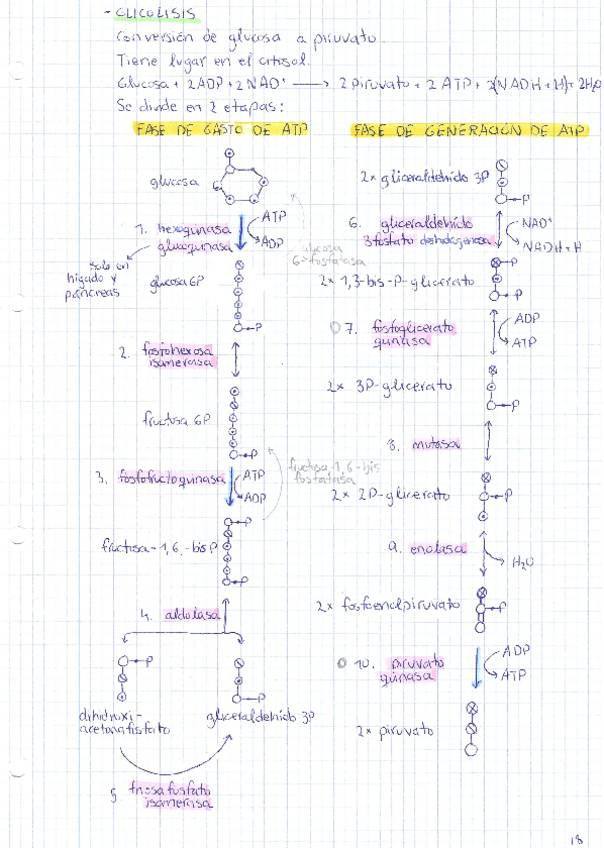 - GLICOLISIS
Conversión de glucosa a piruvato.
Tiene lugar en el citosol.
Glucosa + 2ADP + 2NAD⁺ → 2 piruvato + 2 ATP + 2(NADH + H) + 2H₂O
Se divide en 2 etapas:
FASE DE GASTO DE ATP
glucosa
1. hexoquinasa
glucoquinasa
ATP
ADP
solo en
hígado y
páncreas
glucosa
6-fosfatasa
glucosa 6P
P
2. fosfohexosa
isomerasa
fructosa 6P
P
3. fosfofructoquinasa
ATP
ADP
fructosa-1,6-bis
fosfatasa
fructosa-1,6-bisP
P
P
4. aldolasa
P
P
dihidroxi-
acetonafosfato
gliceraldehído 3P
5. triosa fosfato
isomerasa
FASE DE GENERACIÓN DE ATP
2x gliceraldehído 3P
P
6. gliceraldehído
3fosfato deshidrogenasa
NAD⁺
NADH+H
2x 1,3-bis-P-glicerato
P
P
7. fosfoglicerato
quinasa
ADP
ATP
2x 3P-glicerato
P
8. mutasa
2x 2P-glicerato
P
9. enolasa
H₂O
2x fosfoenolpiruvato
P
10. piruvato
quinasa
ADP
ATP
2x piruvato
18